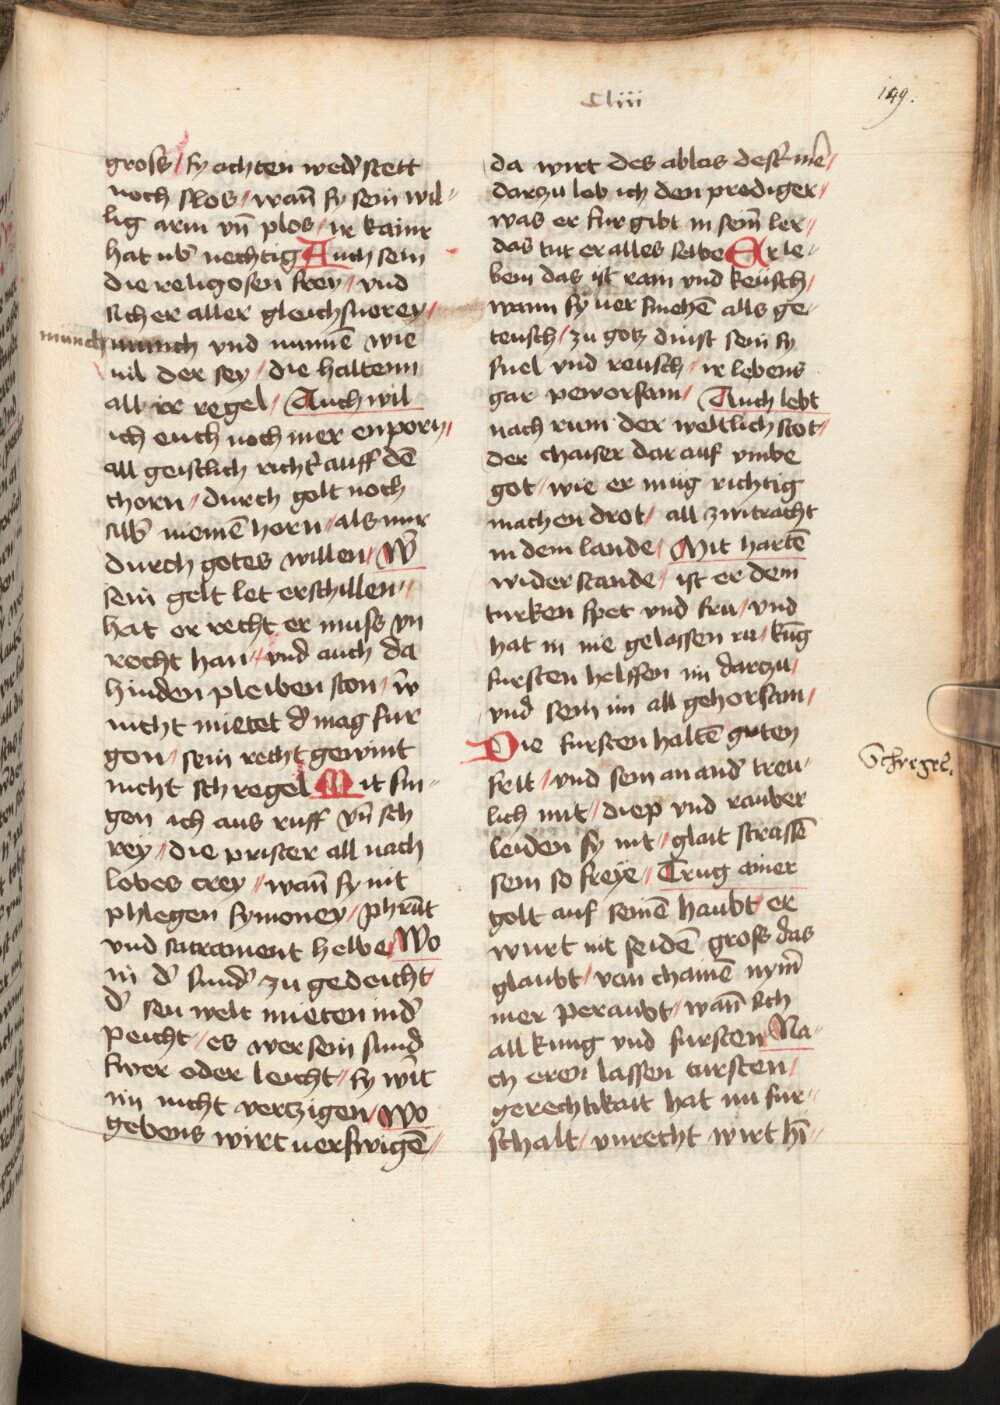 Cliii
149.
gross / sy achten wed' stett
noch slos / wan̄ sy sein wil-
lig arm vn̄ plos / ir kainr
hat vb' nechtig Auch sein
die religosen frey / vnd
sicher aller gleichsnerey /
munch munch vnd nunnē wie
uil der sey / die haltenn
all ir regel / Auch wil
ich euch noch mer enporn /
all geistlich richt' auff dē
thorn / durch golt noch
silb' niemē horn / als nur
durch gotes willen / W'
sein gelt let erschillen //
hat er recht er muss vn
recht han / vnd auch da
hinden pleiben ston / w'
nicht mietet d' mag fur
gon / sein recht gewint
nicht schregel Mit sin-
gen ich aus ruff vn̄ sch
rey / die prister all nach
lobes crey // wan̄ sy nit
phlegen symoney / phrūt
vnd sacrament helbe / Wo
in d' sund' zu gedeicht /
d' sen welt mieten in d'
peicht / es wer sein sund
swer oder leicht / sy w't
im nicht verczigen / Wo
gebens wirt uerswigē //
da wirt des ablas dest' mē /
darzu lob ich den prediger /
was er fur gibt in sein̄ ler /
das tut er alles selbe Er le-
bem das ist rain vnd keusch /
wann sy uer sinchē alls ge-
teusch / zu gotz dinst sein sy
snel vnd reusch / ir lebens
gar peworsam / Auch lebt
nach rum der weltlich stot /
der chaiser dar auf vmbe
got / wie er mug richtig
machen drot / all zwitracht
in dem lande / Mit hartē
widerstande / ist er dem
turken spet vnd fru / vnd
hat in nie gelassen ru / kūg
fursten helffen im darzu /
vnd sein im all gehorsam /
Die fursten haltē guten
frit / vnd sein an and' treu-
lich mit / diep vnd rauber
leiden sy nit / glait strassē
sein so freye / Trug ainer
golt auf seinē haubt er
wurt nit seidē gross das
glaubt / von chainē nym̄'
mer peraubt / wan̄ sich
all kung vnd fursten Na-
ch eren lassen tursten /
gerechtikait hat nu fur-
schalt / vnrecht wirt hī-
Schregel.